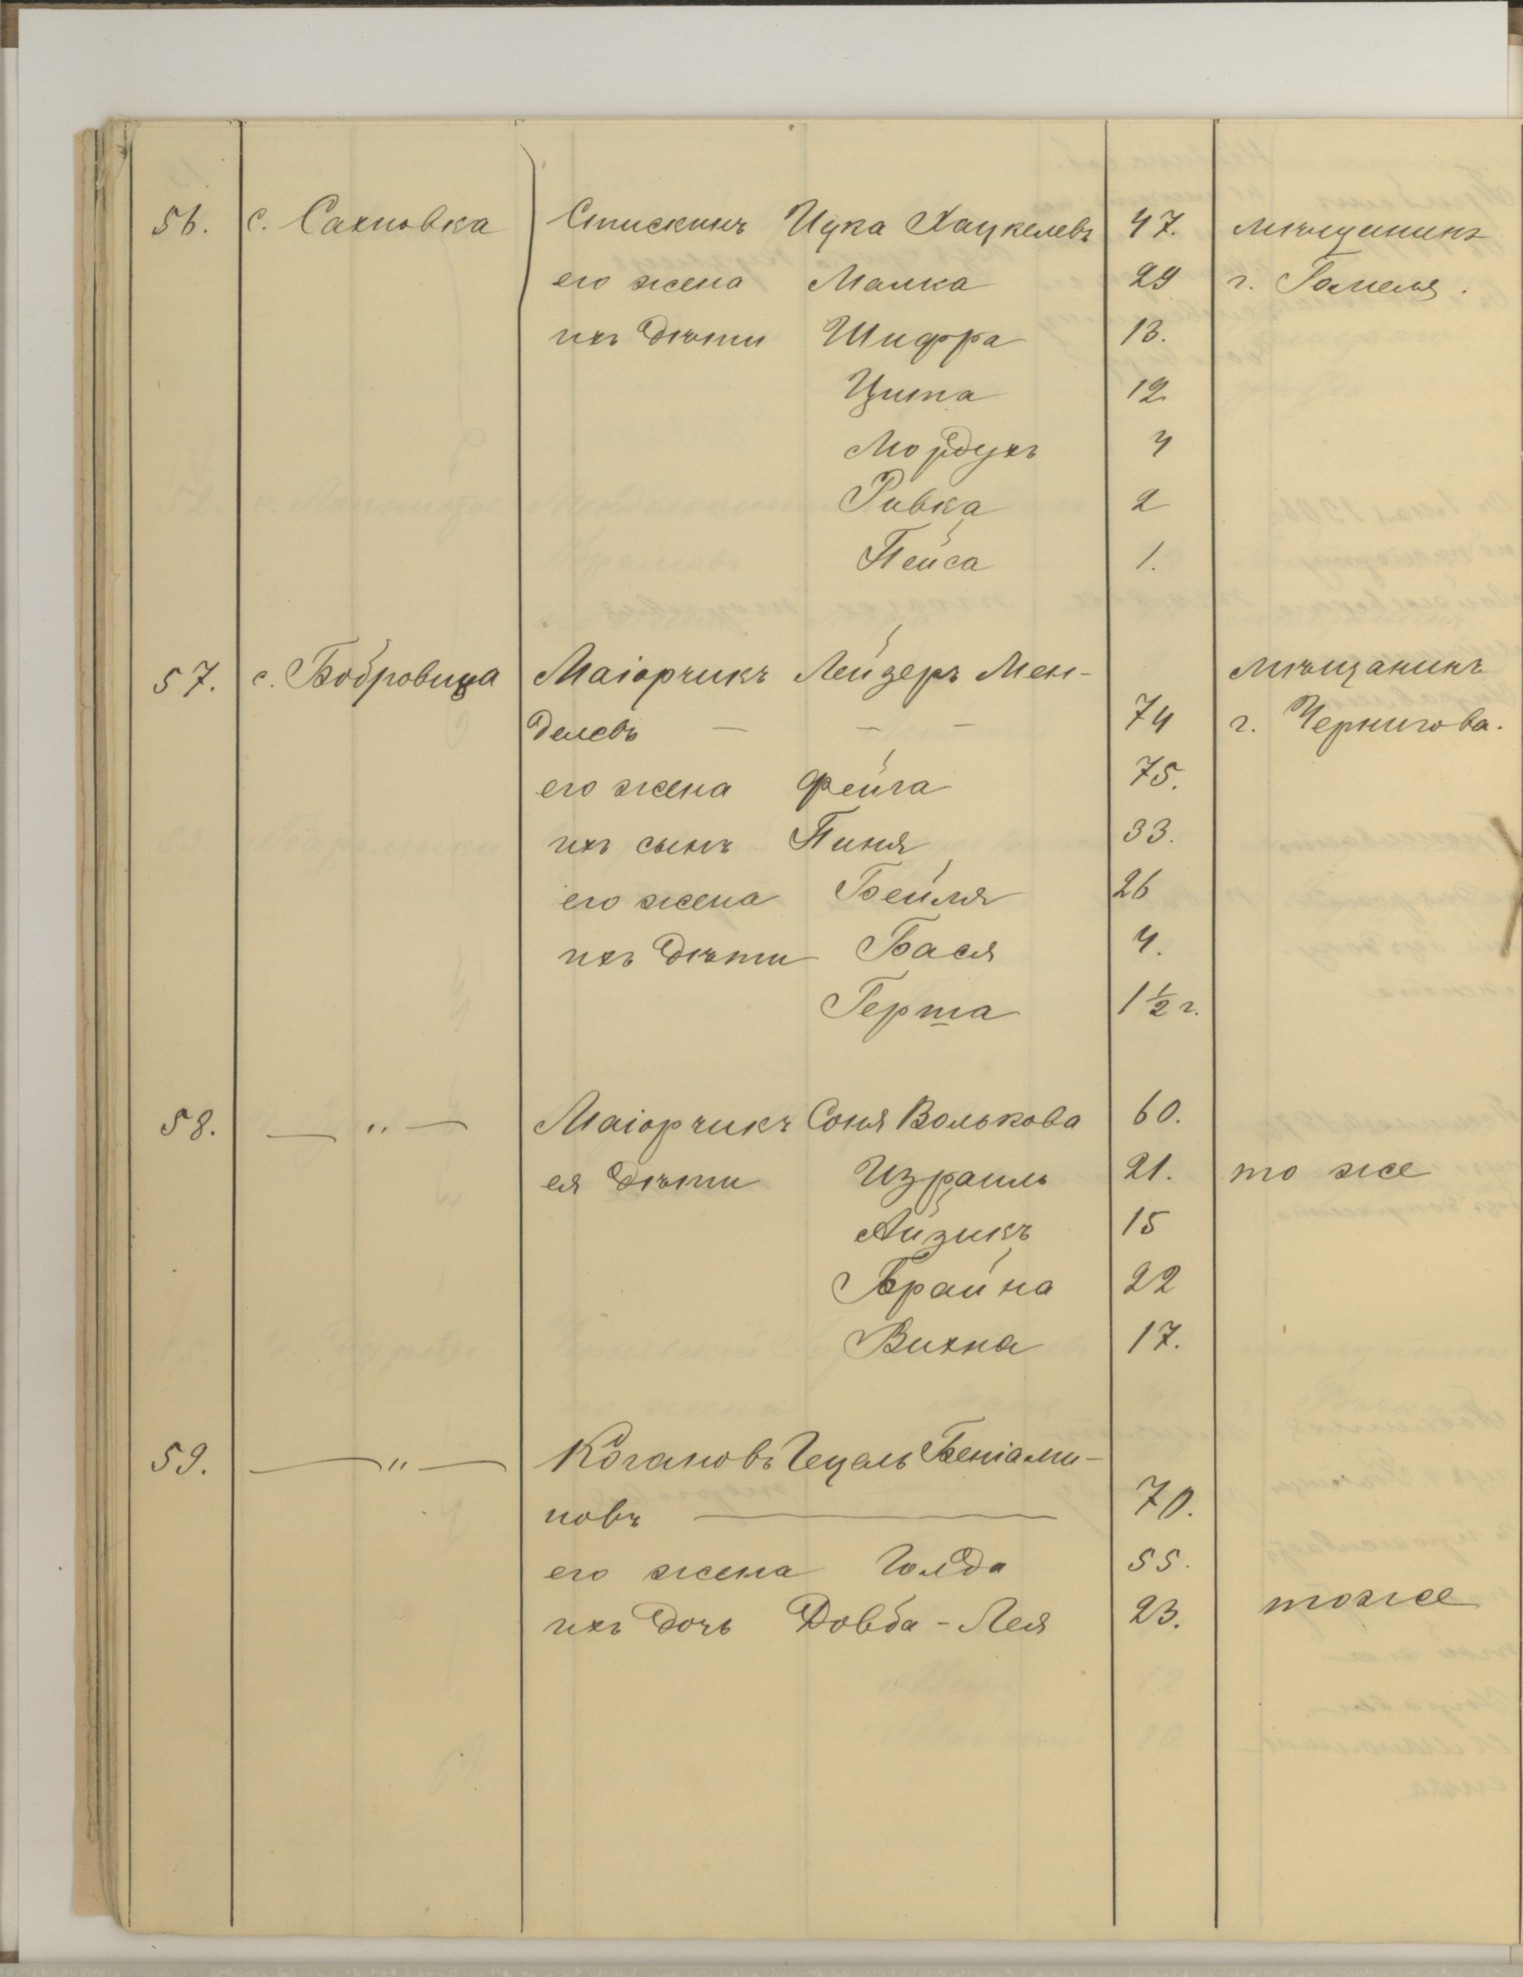 56. с. Сахновка Спискинъ Ицка Хацкелевъ 47. мѣщанинъ
его жена Малка 29 г. Гомеля.
ихъ дѣти Шифра 13.
Цита 12
Мордухъ 4
Ривка 2
Пейса 1.
57. с. Бобровица Маіорчикъ Лейзеръ Мен- мѣщанинъ
делевъ — — — 74 г. Чернигова.
его жена Фейга 75.
ихъ сынъ Пиня 33.
его жена Бейля 26
ихъ дѣти Бася 4.
Герша 1½ г.
58. — " — Маіорчикъ Соня Волькова 60.
ея дѣти Израиль 21. то же
Айзикъ 15
Брайна 22
Вихна 17.
59. — " — Когановъ Гецель Беніами-
новъ — 70.
его жена Голда 55.
ихъ дочь Довба-Лея 23. тоже